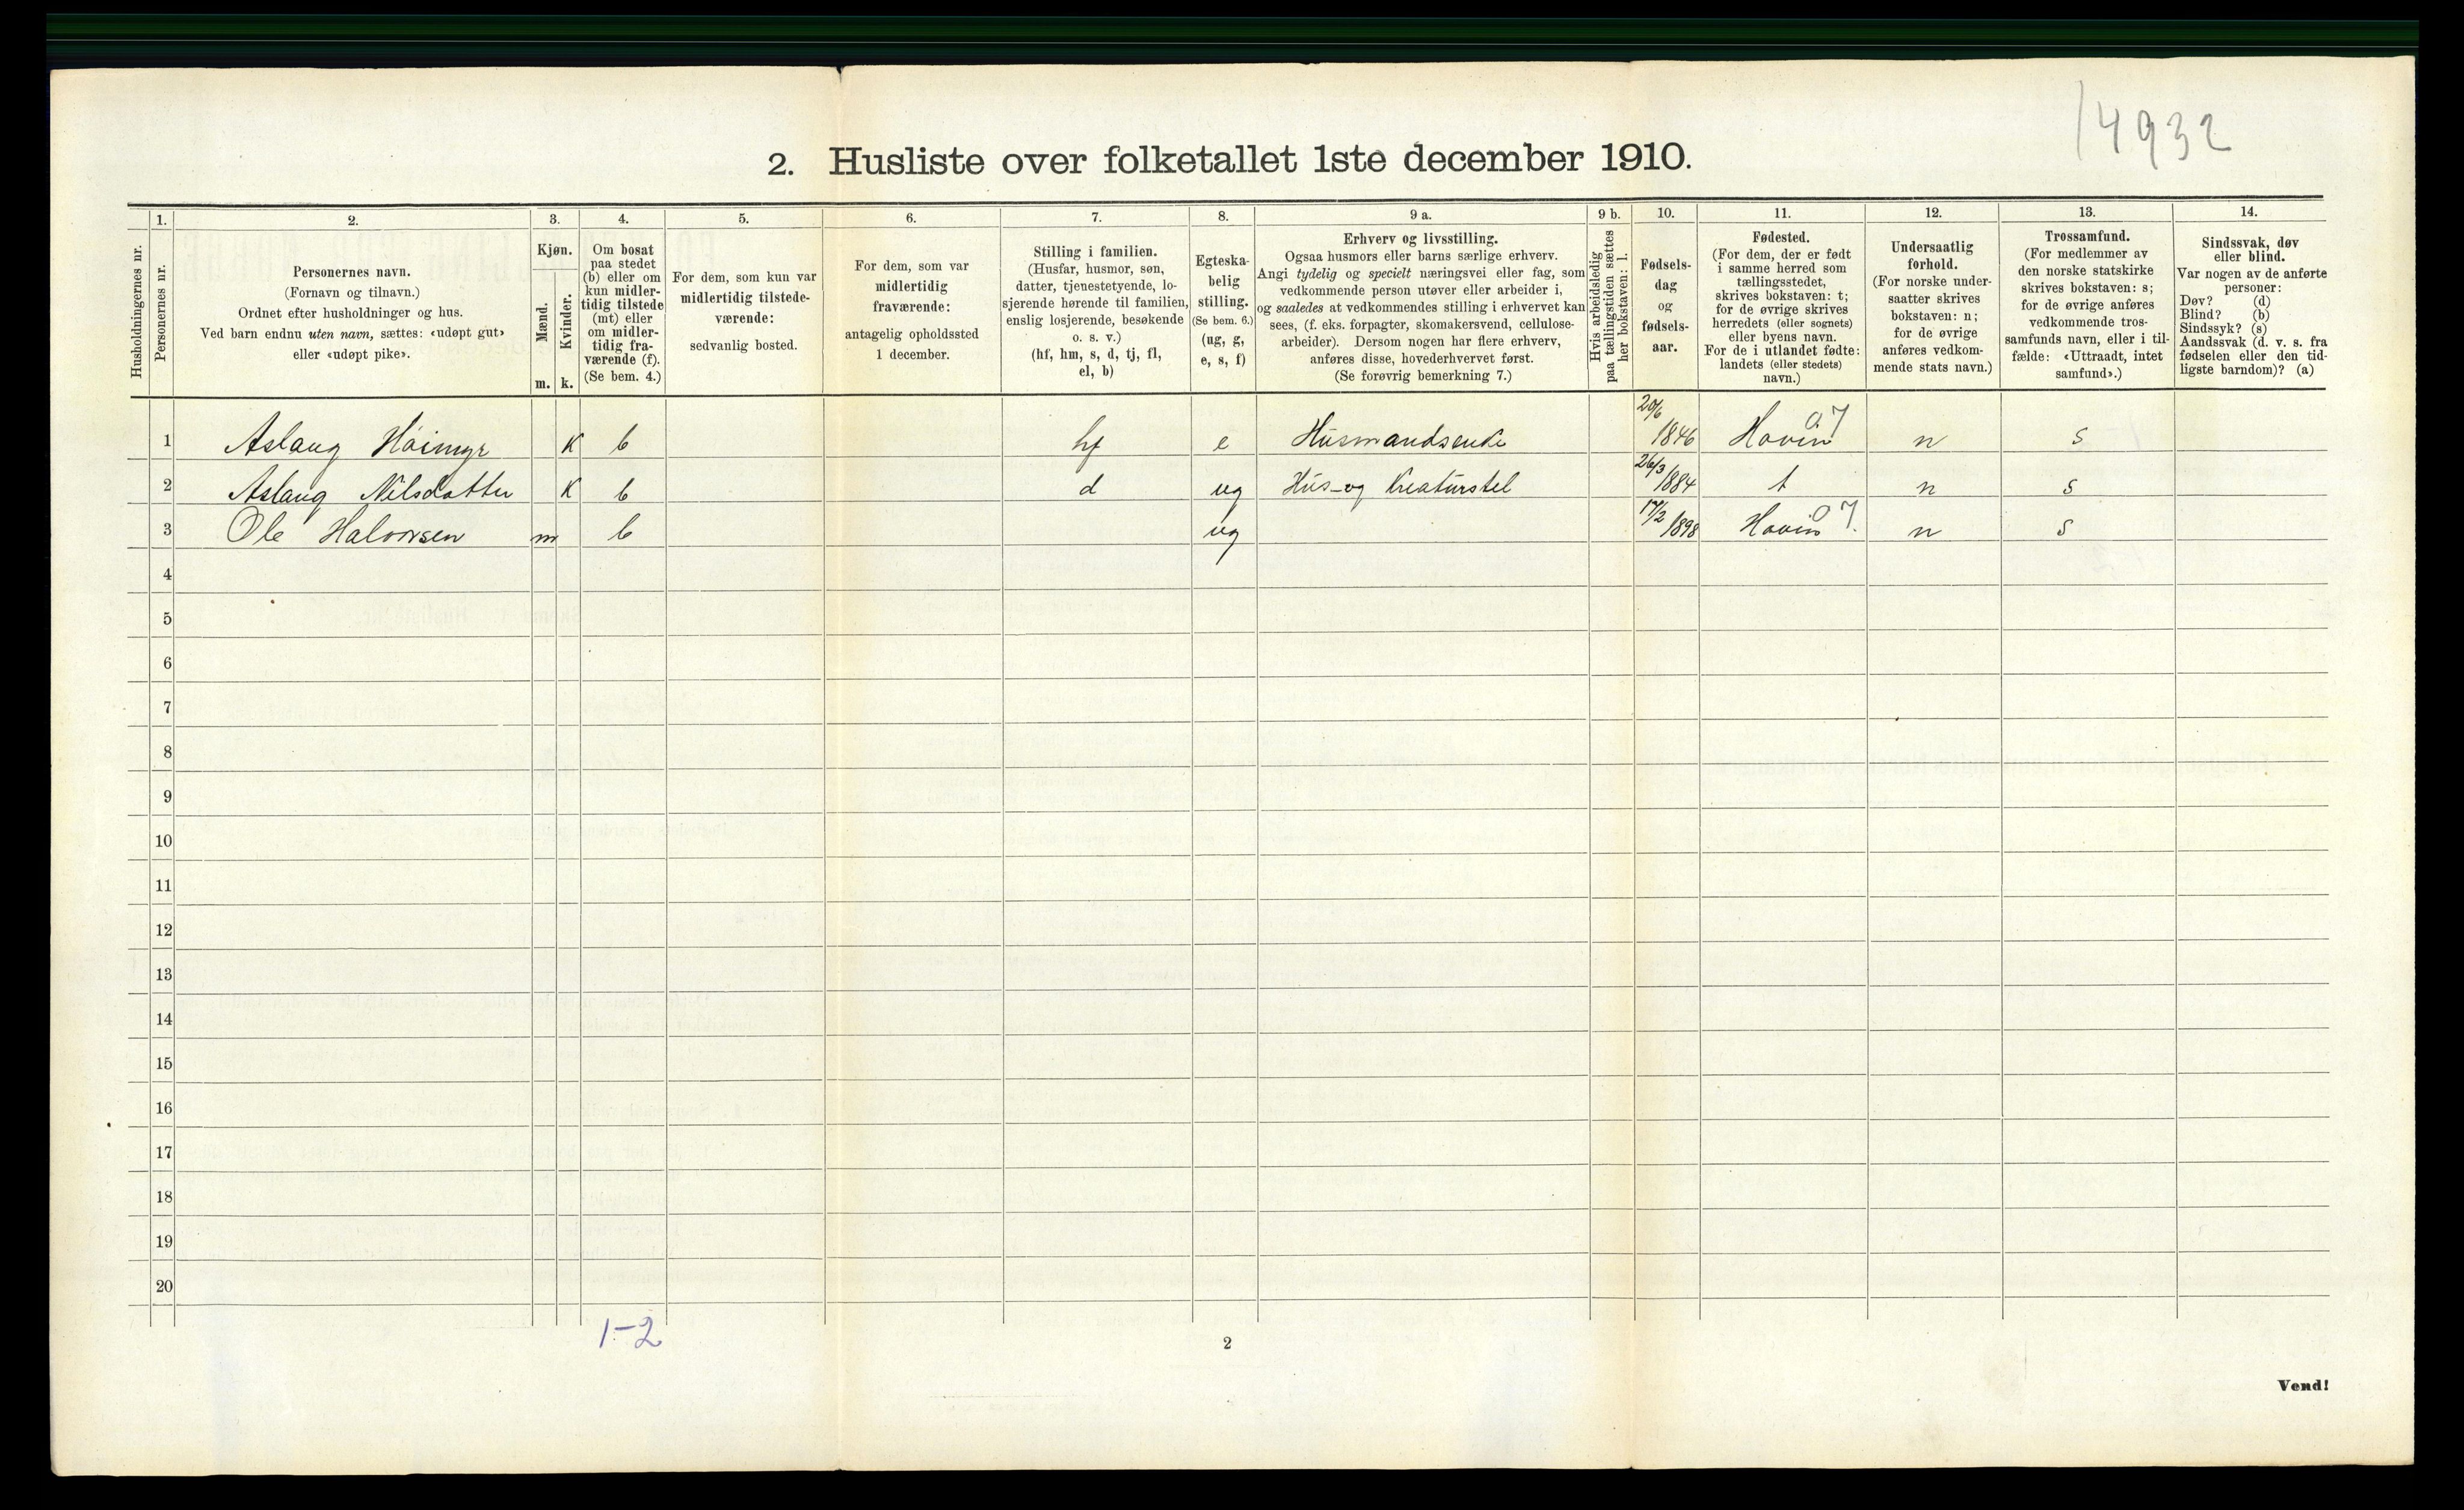 14932
2. Husliste over folketallet 1ste december 1910.
1. 2. 3. 4. 5. 6. 7. 8. 9 a. 9 b. 10. 11. 12. 13. 14.
Husholdningernes nr.
Personernes nr.
Personernes navn.
(Fornavn og tilnavn.)
Ordnet efter husholdninger og hus.
Ved barn endnu uten navn, sættes: «udøpt gut»
eller «udøpt pike».
Kjøn.
Mænd.
Kvinder.
m. k.
Om bosat
paa stedet
(b) eller om
kun midler-
tidig tilstede
(mt) eller
om midler-
tidig fra-
værende (f).
(Se bem. 4.)
For dem, som kun var
midlertidig tilstede-
værende:
sedvanlig bosted.
For dem, som var
midlertidig
fraværende:
antagelig opholdssted
1 december.
Stilling i familien.
(Husfar, husmor, søn,
datter, tjenestetyende, lo-
sjerende hørende til familien,
enslig losjerende, besøkende
o. s. v.)
(hf, hm, s, d, tj, fl,
el, b)
Egteska-
belig
stilling.
(Se bem. 6.)
(ug, g,
e, s, f)
Erhverv og livsstilling.
Ogsaa husmors eller barns særlige erhverv.
Angi tydelig og specielt næringsvei eller fag, som
vedkommende person utøver eller arbeider i,
og saaledes at vedkommendes stilling i erhvervet kan
sees, (f. eks. forpagter, skomakersvend, cellulose-
arbeider). Dersom nogen har flere erhverv,
anføres disse, hovederhvervet først.
(Se forøvrig bemerkning 7.)
Hvis arbeidsledig
paa tællingstiden sættes
her bokstaven: l.
Fødsels-
dag
og
fødsels-
aar.
Fødested.
(For dem, der er født
i samme herred som
tællingsstedet,
skrives bokstaven: t;
for de øvrige skrives
herredets (eller sognets)
eller byens navn.
For de i utlandet fødte:
landets (eller stedets)
navn.)
Undersaatlig
forhold.
(For norske under-
saatter skrives
bokstaven: n;
for de øvrige
anføres vedkom-
mende stats navn.)
Trossamfund.
(For medlemmer av
den norske statskirke
skrives bokstaven: s;
for de øvrige anføres
vedkommende tros-
samfunds navn, eller i til-
fælde: «Uttraadt, intet
samfund».)
Sindssvak, døv
eller blind.
Var nogen av de anførte
personer:
Døv? (d)
Blind? (b)
Sindssyk? (s)
Aandssvak (d. v. s. fra
fødselen eller den tid-
ligste barndom)? (a)
1 Aslaug Høimyr K b hf e Husmandsenke 20/6 1846 Hovin 07 n s
2 Aslaug Nilsdatter K b d ug Hus- og Kreaturstel 26/3 1884 t n s
3 Ole Halvorsen m b ug 17/2 1898 Hovin 07. n s
4
5
6
7
8
9
10
11
12
13
14
15
16
17
18
19
20
1-2
2
Vend!